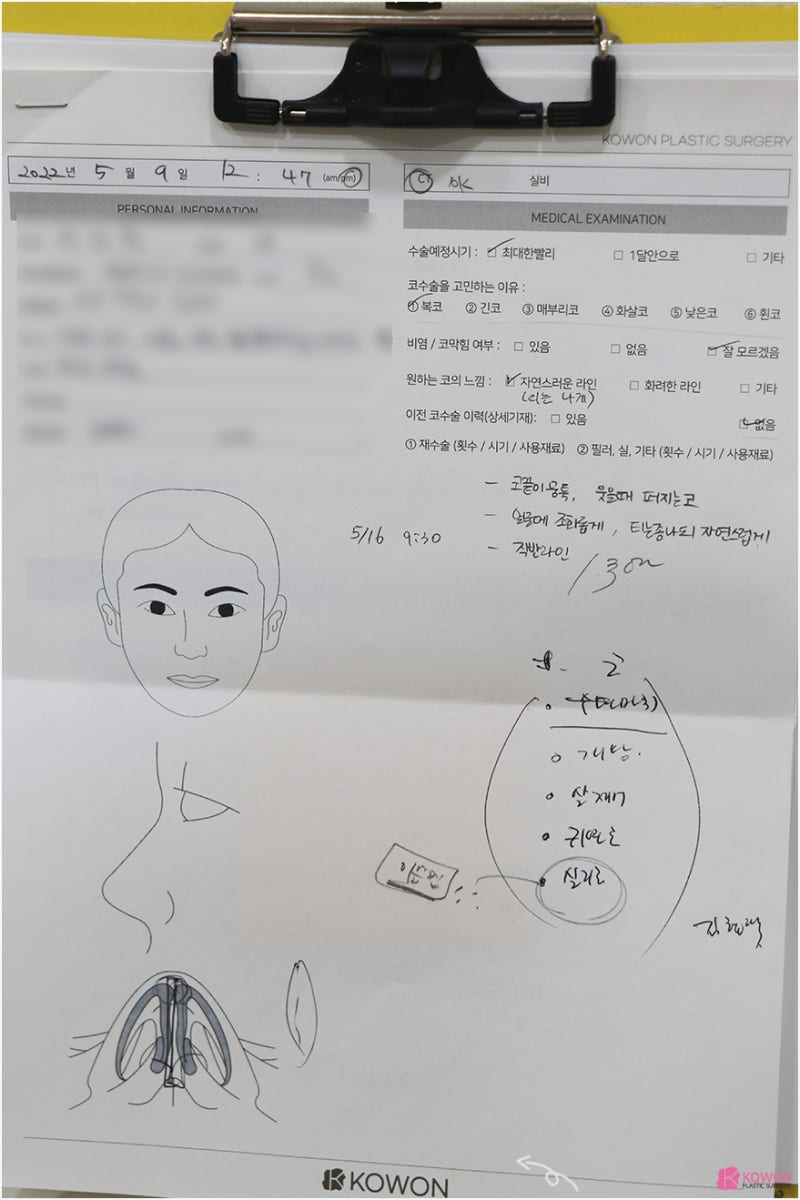 KOWON PLASTIC SURGERY
2022년 5월 9일 12 : 47 (am/pm)
CT OK 실비
PERSONAL INFORMATION
MEDICAL EXAMINATION
수술예정시기 : □ 최대한빨리 □ 1달안으로 □ 기타
코수술을 고민하는 이유 :
① 복코 ② 긴코 ③ 매부리코 ④ 화살코 ⑤ 낮은코 ⑥ 휜코
비염 / 코막힘 여부 : □ 있음 □ 없음 □ 잘 모르겠음
원하는 코의 느낌 : □ 자연스러운 라인 □ 화려한 라인 □ 기타
(티는 나게)
이전 코수술 이력(상세기재): □ 있음 □ 없음
① 재수술 (횟수 / 시기 / 사용재료) ② 필러, 실, 기타 (횟수 / 시기 / 사용재료)
- 코끝이 뭉툭, 웃을때 퍼지는코
- 얼굴에 조화롭게, 티는좀나되 자연스럽게
5/16 9:30
- 직반라인
코
수면마취
개방
살재
귀연골
실리콘
KOWON
KOWON
PLASTIC SURGERY